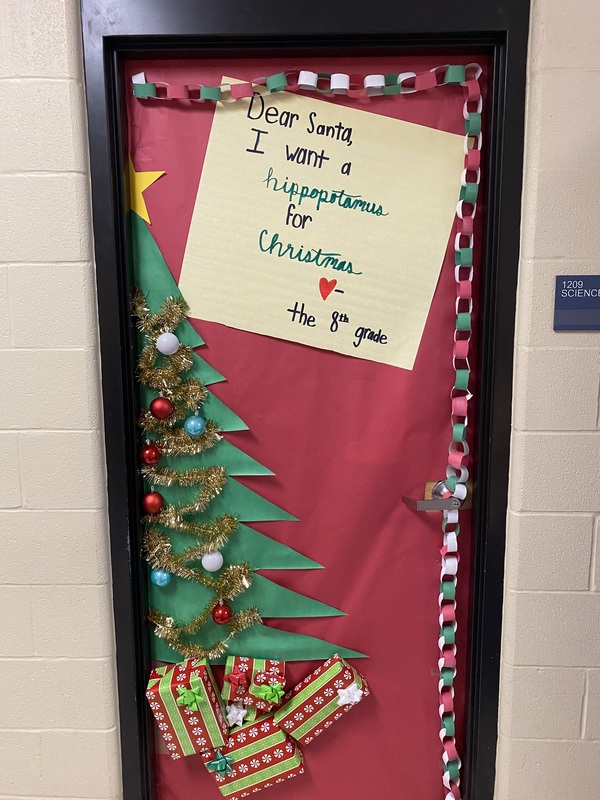 Dear Santa,
I want a
hippopotamus
for
Christmas
♥-
the 8th grade
1209
SCIENCE